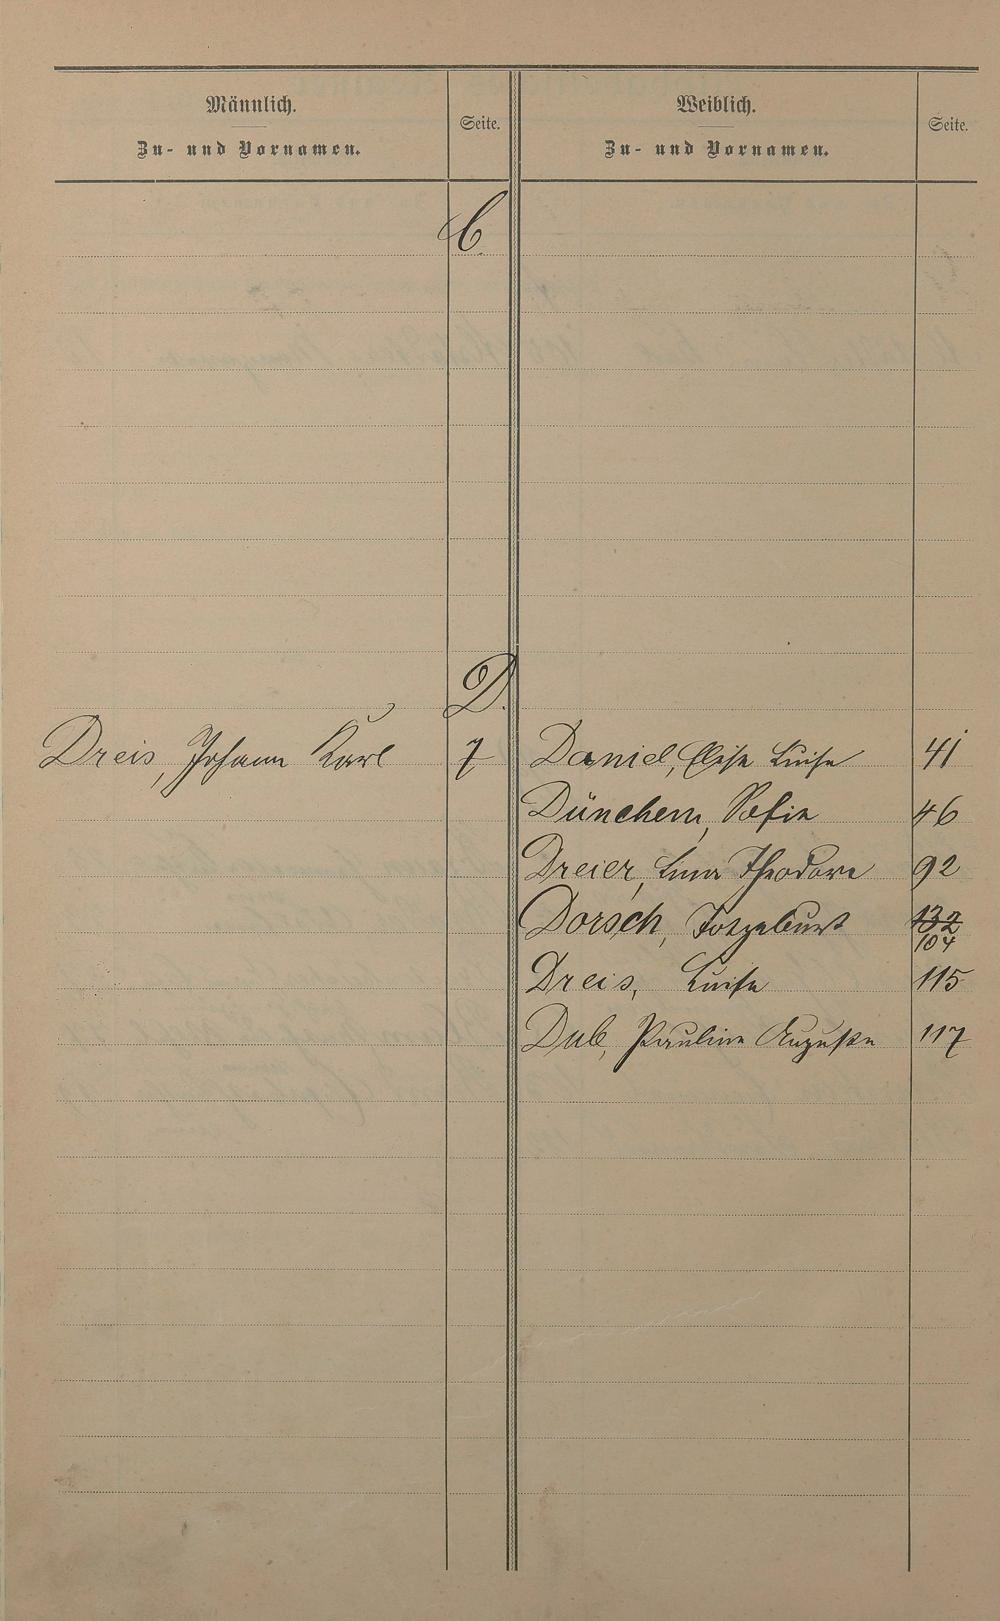 Männlich. Seite. Weiblich. Seite.
Zu- und Vornamen. Zu- und Vornamen.
C.
D.
Dreis, Johann Karl 7 Daniel, Elise Luise 41
Dünchem, Sofie 46
Dreier, Lina Theodore 92
Dorsch, Totgeburt 132
104
Dreis, Luise 115
Dub, Pauline Auguste 117